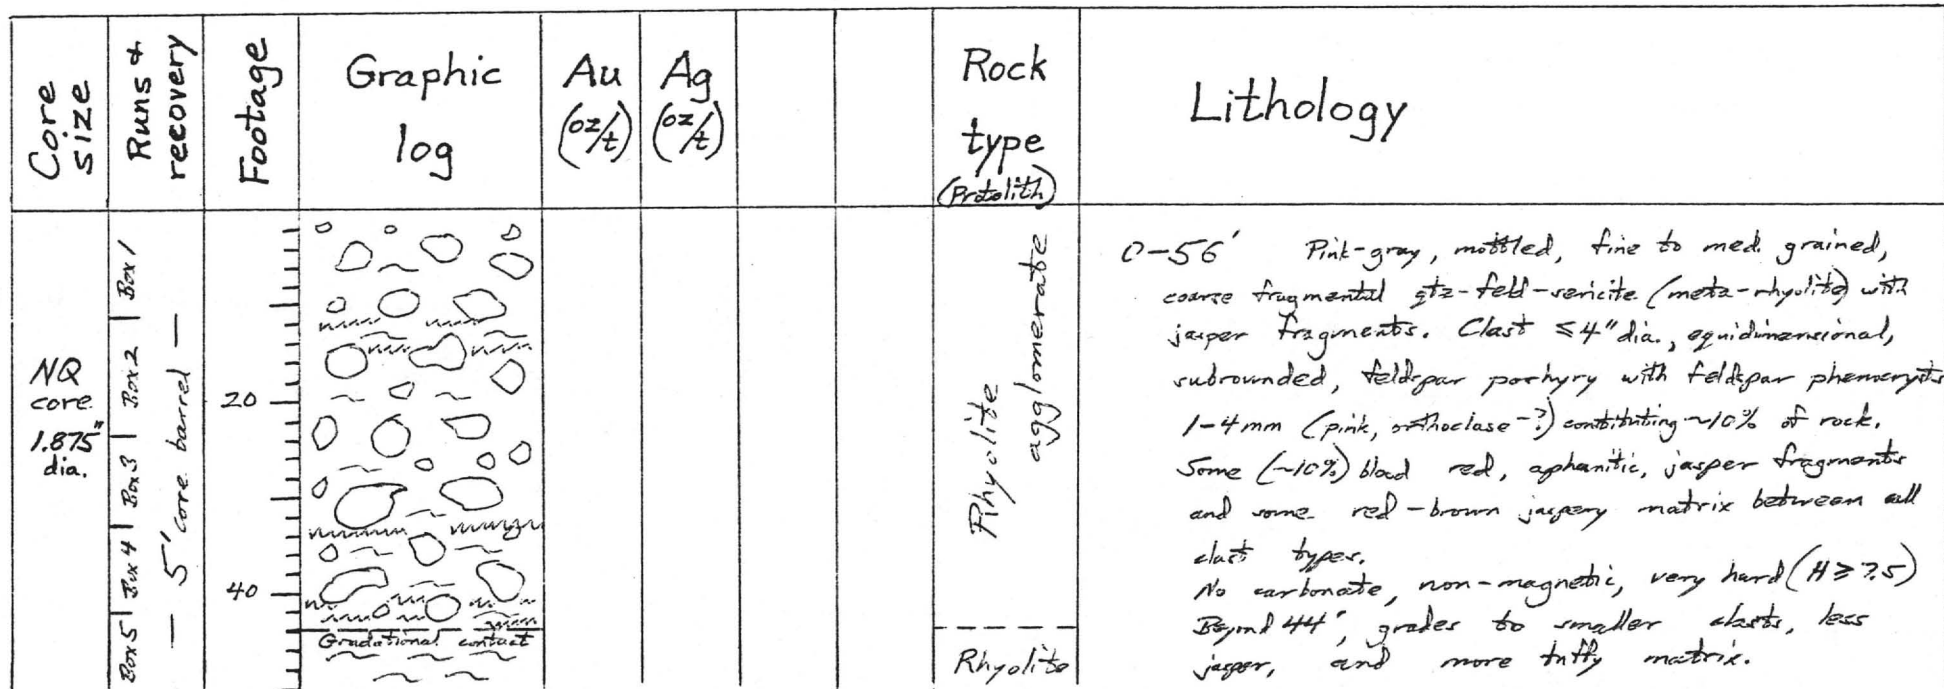 Core size
Runs & recovery
Footage
Graphic log
Au (oz/t)
Ag (oz/t)
Rock type (Protolith)
Lithology
NQ
core
1.875"
dia.
Box 1
Box 2
Box 3
Box 4
Box 5
— 5' core barrel —
20
40
Gradational contact
Rhyolite agglomerate
Rhyolite
0-56' Pink-gray, mottled, fine to med. grained,
coarse fragmental qtz-feld-sericite (meta-rhyolite) with
jasper fragments. Clast ≤4" dia., equidimensional,
subrounded, feldspar porhyry with feldspar phenocrysts
1-4mm (pink, orthoclase-?) contibuting ~10% of rock.
Some (~10%) blood red, aphanitic, jasper fragments
and some red-brown jaspery matrix between all
clast types.
No carbonate, non-magnetic, very hard (H≥7.5)
Beyond 44', grades to smaller clasts, less
jasper, and more tuffy matrix.